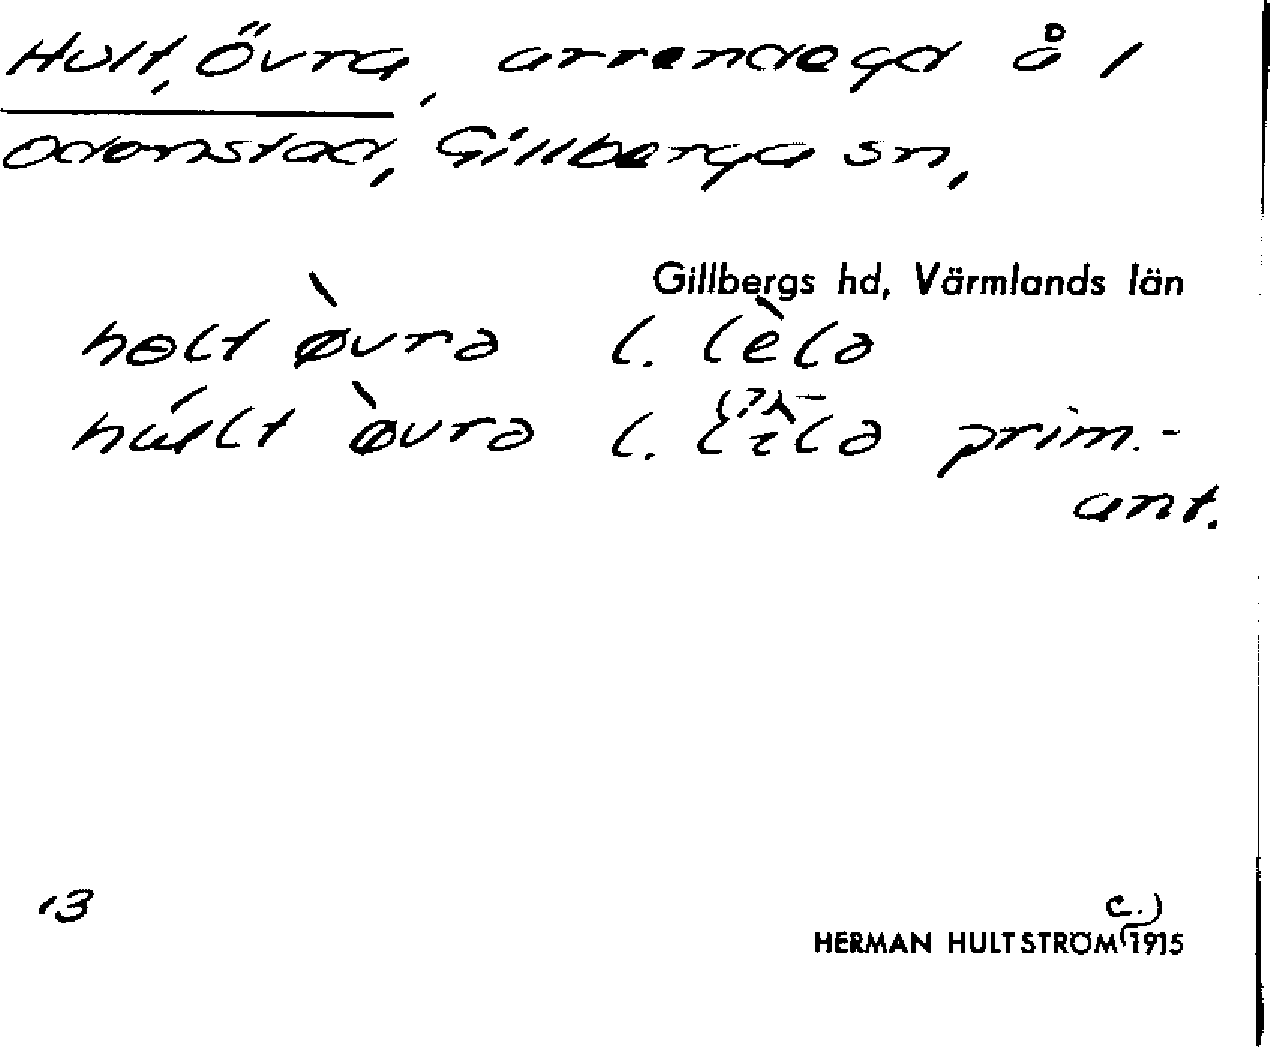 Hult, Övra, arrendegd å 1
Odenstad, Gillberga sn,
Gillbergs hd, Värmlands län
hɵlt ø̀vrə l. lèlə
prim.-
ant.
13
c.)
HERMAN HULTSTRÖM 1915